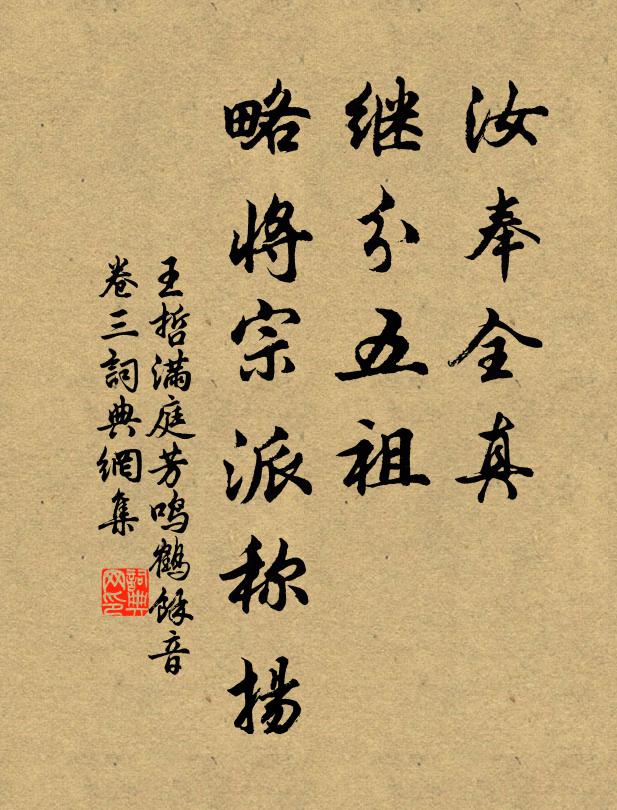 汝奉全真
继分五祖
略将宗派称扬
王哲满庭芳鸣鹤馀音
卷三詞典網集
詞典
网印